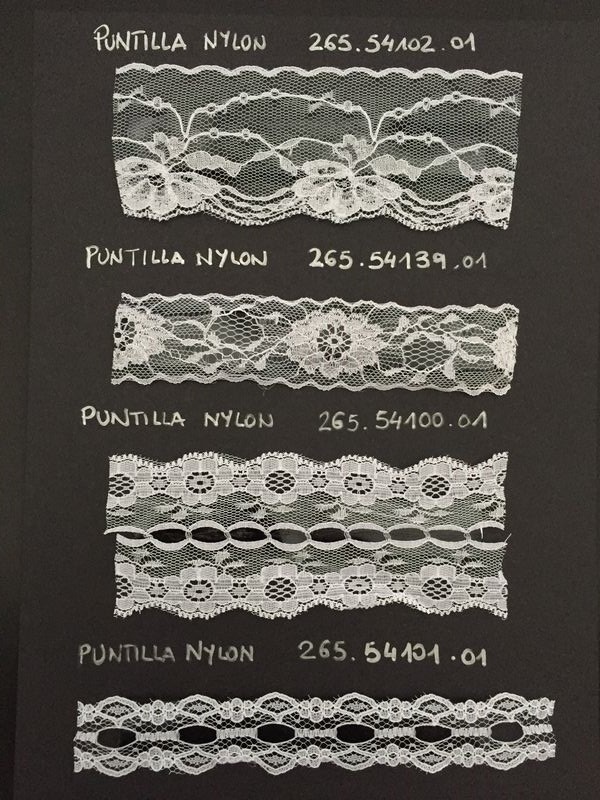 PUNTILLA NYLON 265.54102.01
PUNTILLA NYLON 265.54139.01
PUNTILLA NYLON 265.54100.01
PUNTILLA NYLON 265.54101.01